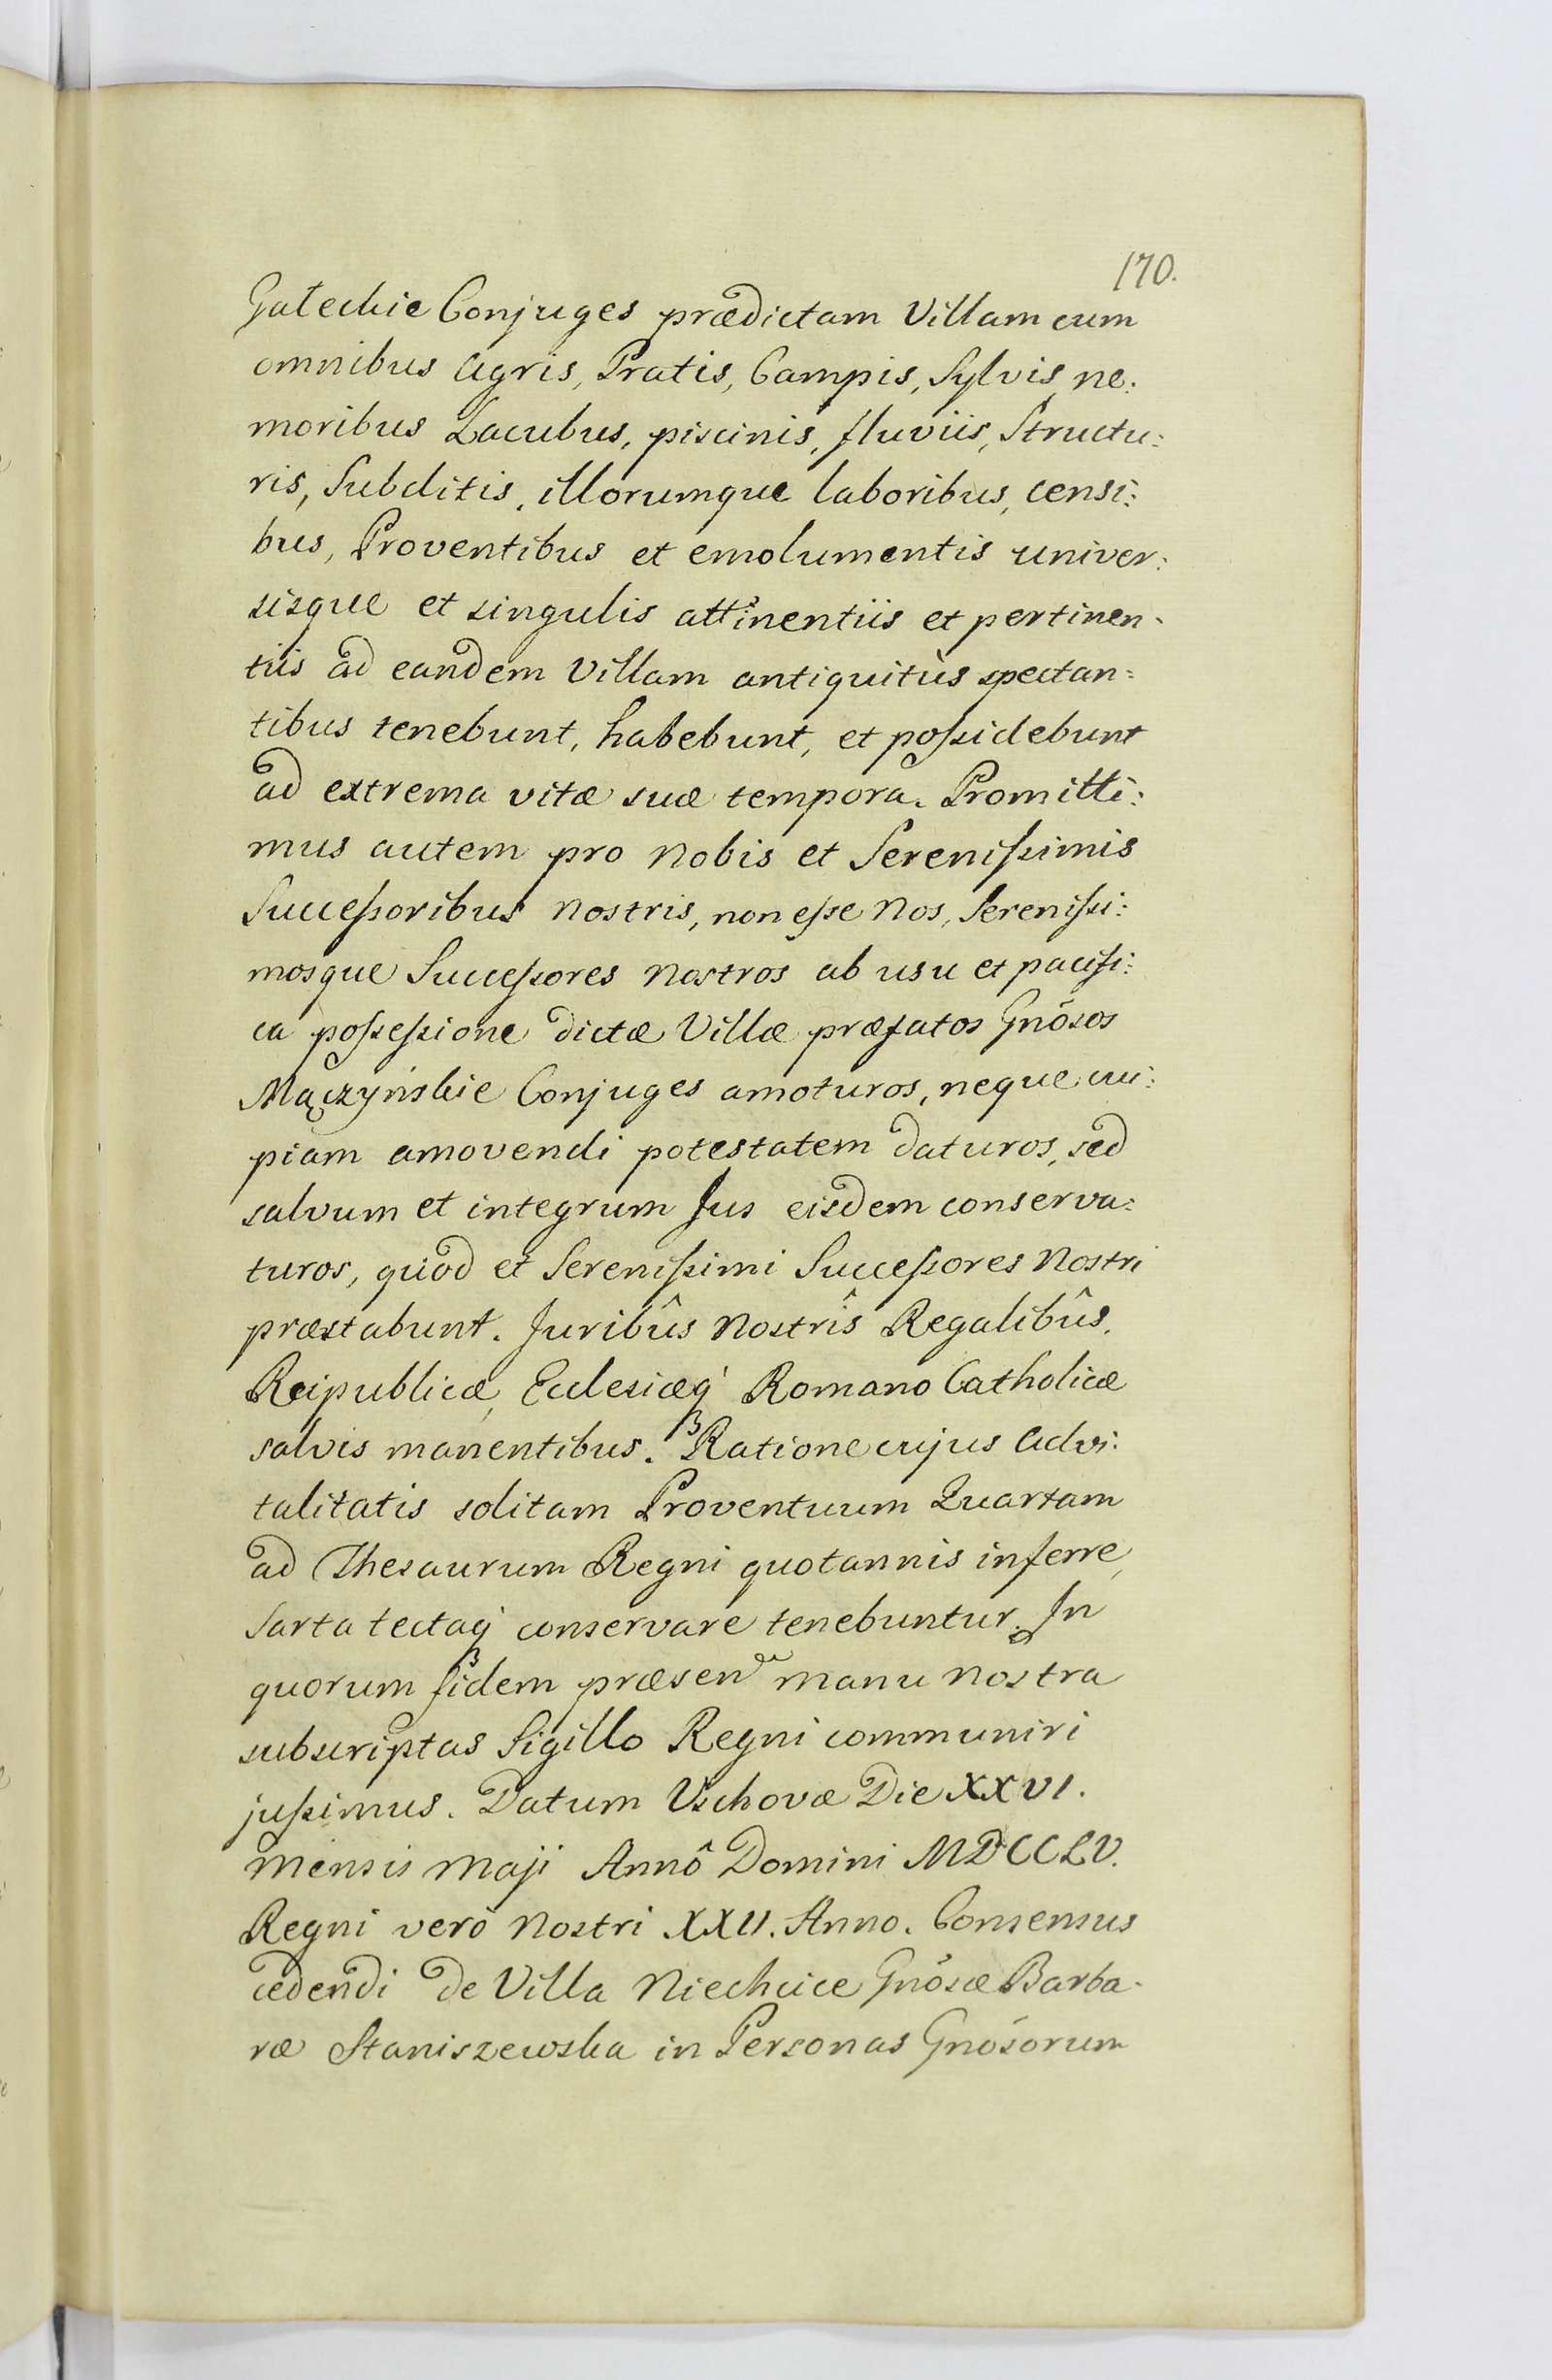 170.
Gałeckie Conjuges prædictam Villam cum
omnibus Agris, Pratis, Campis, Sylvis, ne:
moribus Lacubus, piscinis, fluviis, Structu:
ris, Subditis, illorumque laboribus, censi:
bus, Proventibus et emolumentis univer:
sisque et singulis attinentiis et pertinen-
tiis ad eandem Villam antiquitùs spectan=
tibus tenebunt, habebunt, et poſsidebunt
ad extrema vitæ suæ tempora. Promitti:
mus autem pro Nobis et Sereniſsimis
Succeſsoribus Nostris, non eſse Nos, Sereniſsi:
mosque Succeſsores Nostros ab usu et pacifi:
ca poſseſsione dictæ Villæ præfatos Gnôsos
Mączyńskie Conjuges amoturos, neque cui:
piam amovendi potestatem daturos, sed
salvum et integrum Jus eisdem conserva:
turos, quod et Sereniſsimi Succeſsores Nostri
præstabunt. Juribûs Nostrîs Regalibûs,
Reipublicæ, Ecclesiæq́ Romano Catholicæ
salvis manentibus. Ratione cujus Advi:
talitatis solitam Proventuum Quartam
ad Thesaurum Regni quotannis inferre,
Sarta tectaq́ conservare tenebuntur. In
quorum fidem præsen manu Nostra
subscriptas Sigillo Regni communiri
juſsimus. Datum Vschovæ Die XXVI.
Mensis Maji Annô Domini MDCCLV.
Regni verò Nostri XXII. Anno. Consensus
cedendi de Villa Niechcice Gnôsæ Barba-
ræ Staniszewska in Personas Gnôsorum